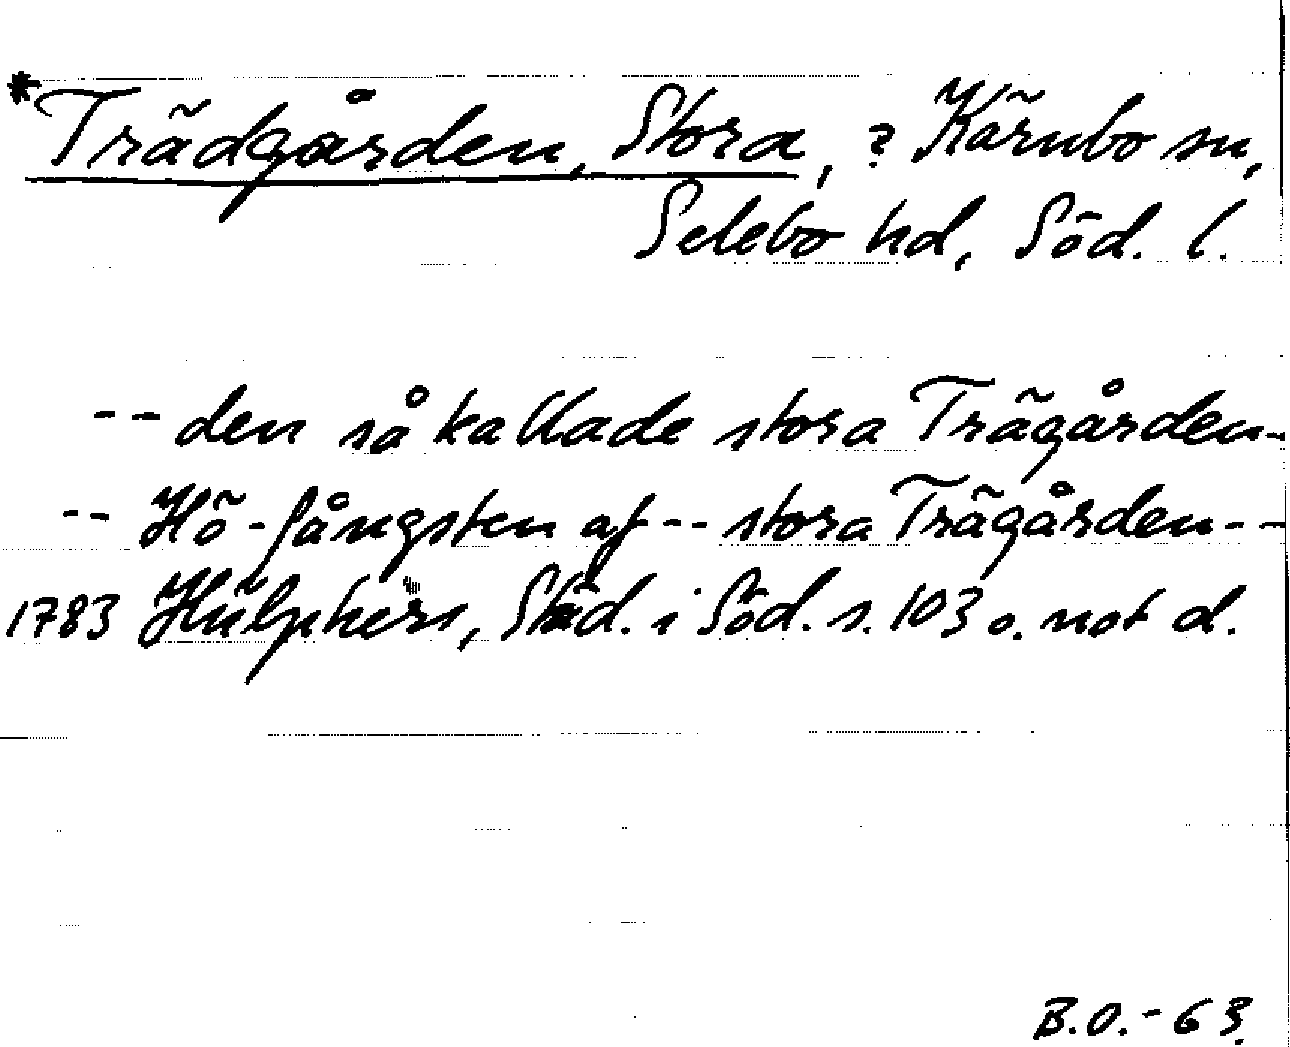 *Trädgården, Stora, ? Kärnbo sn,
Selebo hd, Söd. l.
-- den så kallade stora Trägården-
-- Hö-fångsten af -- stora Trägården --
1783 Hülphers, Städ. i Söd. s. 103 o. not d.
B.O.-63.